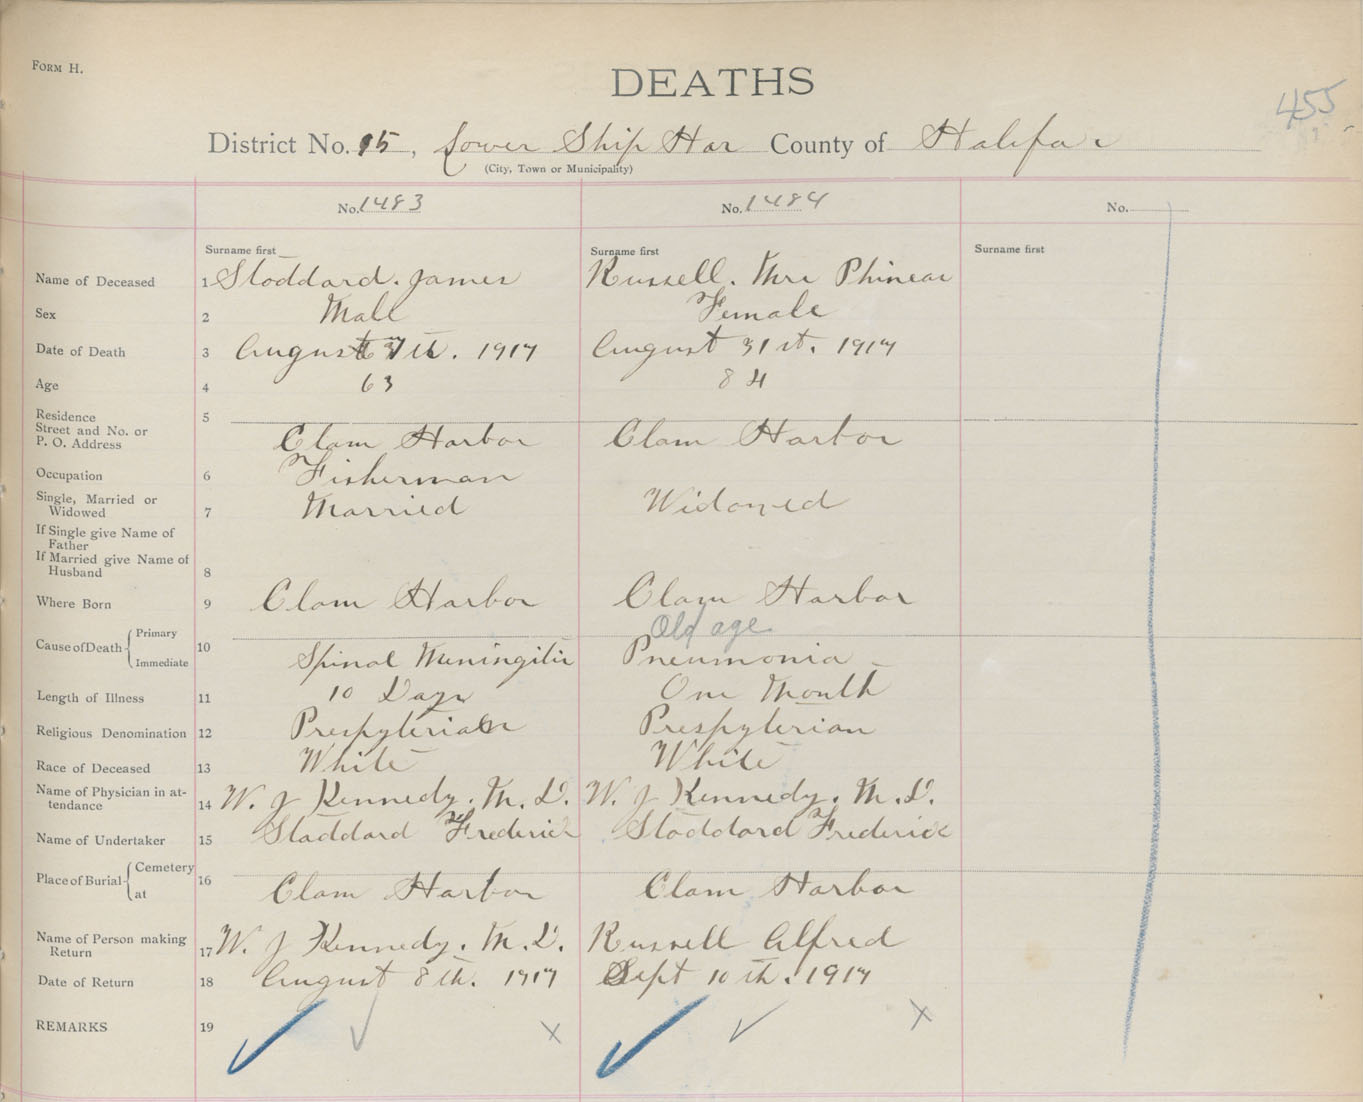 FORM H.
DEATHS
455
District No. 15, Lower Ship Har County of Halifax
(City, Town or Municipality)
No. 1483 No. 1484 No.
Surname first Surname first Surname first
Name of Deceased 1 Stoddard. James Russell. Mrs Phineas
Sex 2 Male Female
Date of Death 3 August 7th. 1917 August 31st. 1917
Age 4 63 84
Residence
Street and No. or
P. O. Address 5 Clam Harbor Clam Harbor
Occupation 6 Fisherman
Single, Married or
Widowed 7 Married Widowed
If Single give Name of
Father
If Married give Name of
Husband 8
Where Born 9 Clam Harbor Clam Harbor
Old age
Cause of Death Primary
Immediate 10 Spinal Meningitis Pneumonia
Length of Illness 11 10 Days One Month
Religious Denomination 12 Prespyterian Prespyterian
Race of Deceased 13 White White
Name of Physician in at-
tendance 14 W. J Kennedy. M. D. W. J Kennedy. M. D.
Name of Undertaker 15 Stoddard Frederick Stoddard Frederick
Place of Burial Cemetery
at 16 Clam Harbor Clam Harbor
Name of Person making
Return 17 W. J Kennedy. M. D. Russell Alfred
Date of Return 18 August 8th. 1917 Sept 10th. 1917
REMARKS 19